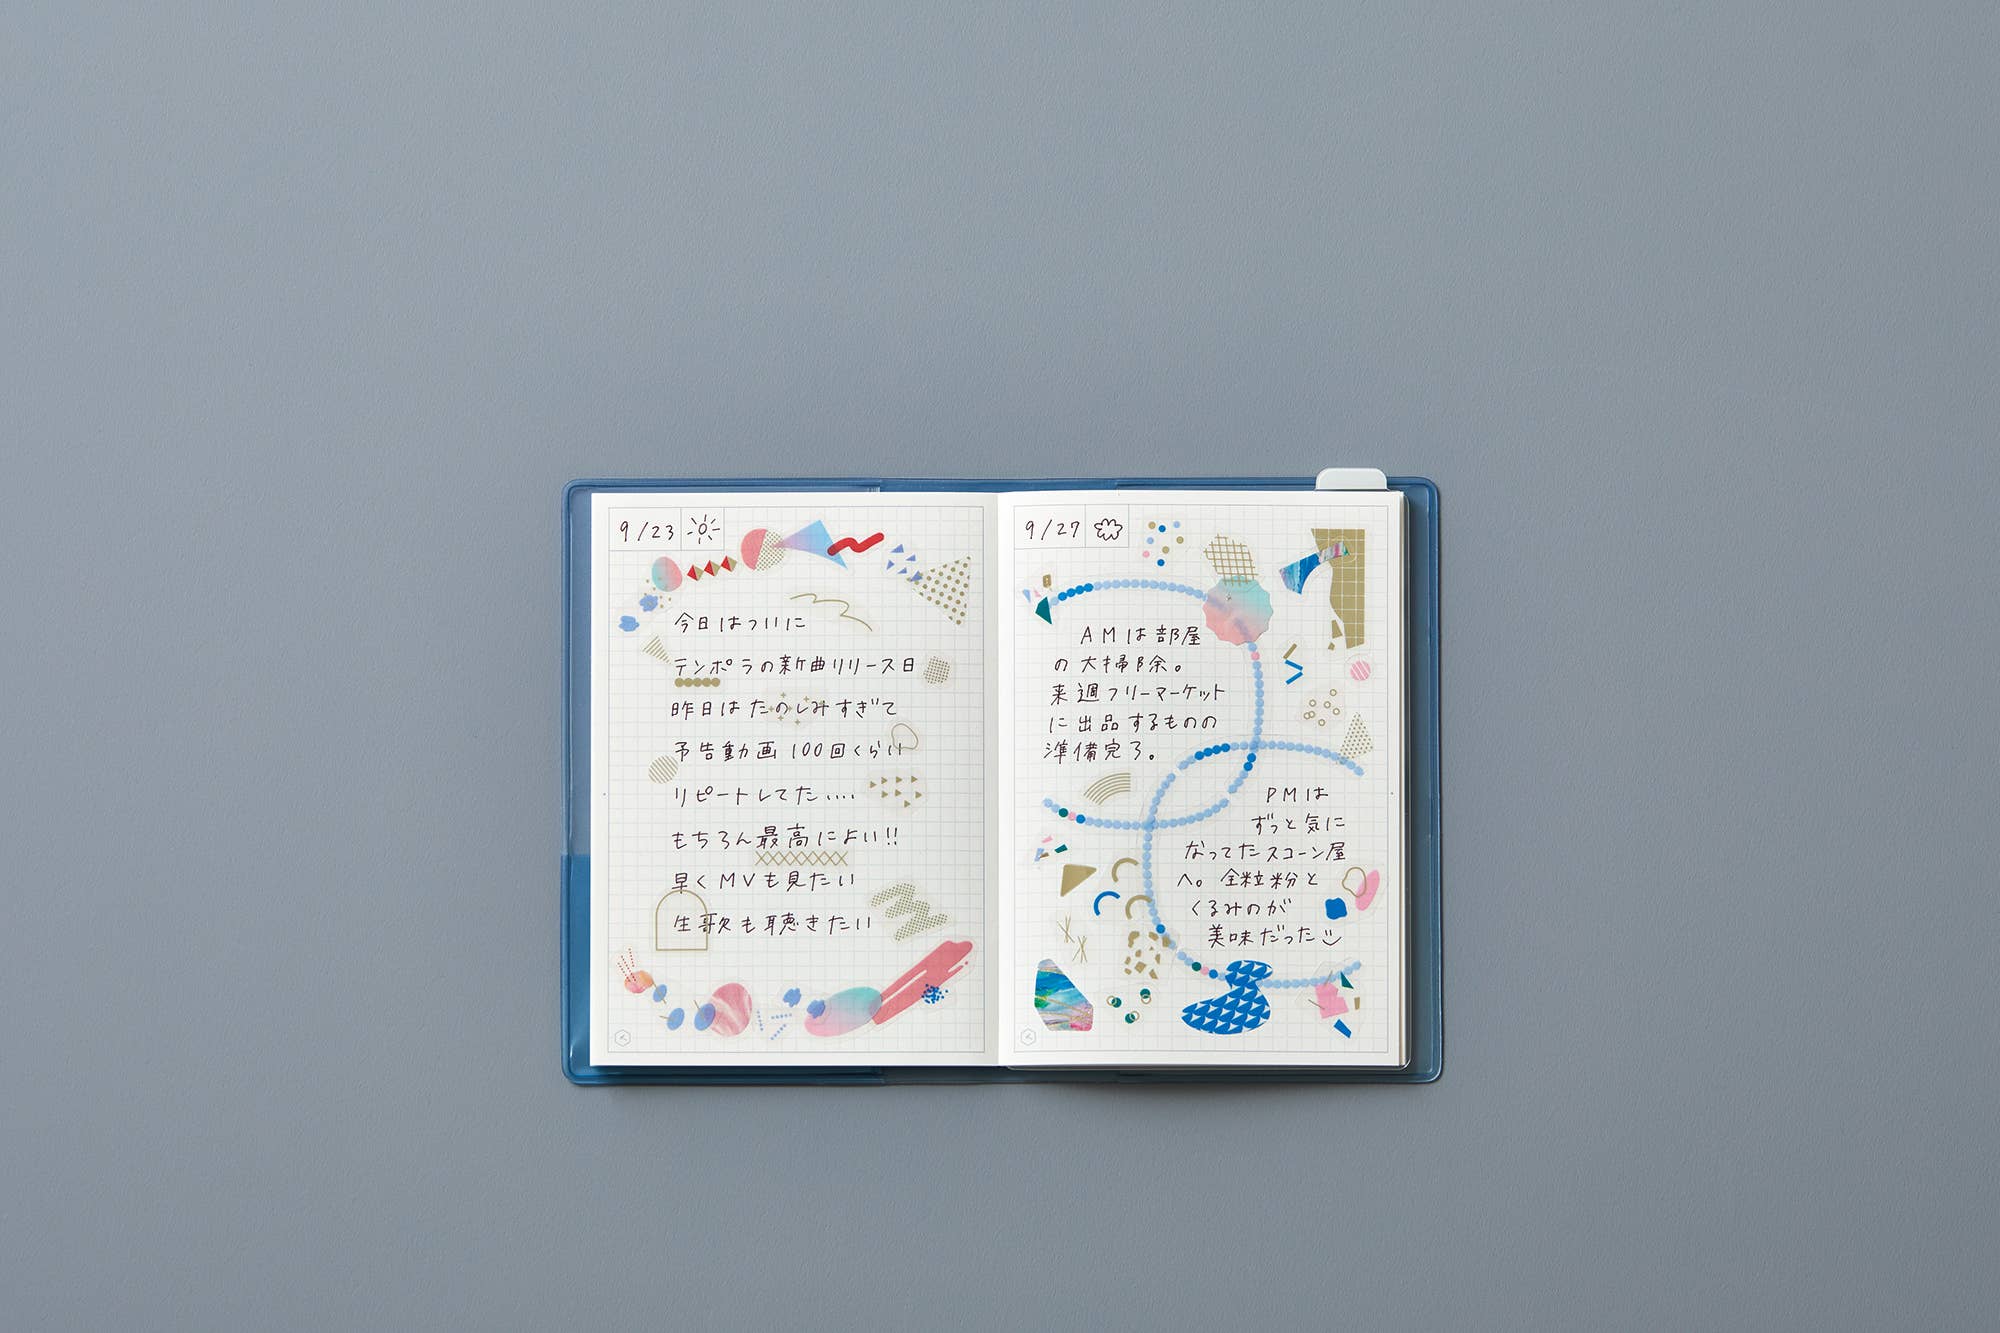 9/23
今日はついに
テンポラの新曲リリース日
昨日はたのしみすぎて
予告動画100回くらい
リピートしてた....
もちろん最高によい!!
早くMVも見たい
生歌も聴きたい
9/27
AMは部屋
の大掃除。
来週フリーマーケット
に出品するものの
準備完了。
PMは
ずっと気に
なってたスコーン屋
へ。全粒粉と
くるみのが
美味だった